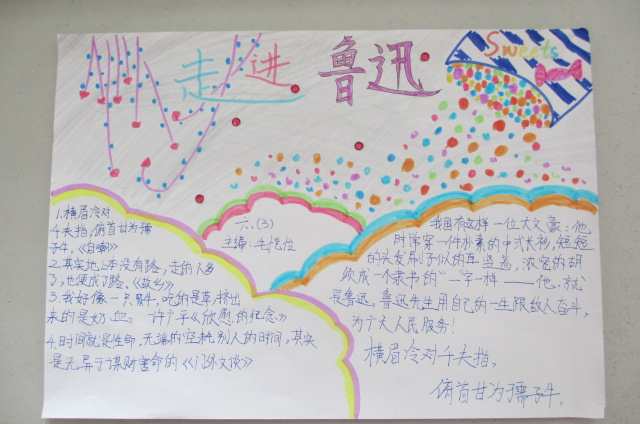 走进 鲁迅
Sweets
1.横眉冷对
千夫指,俯首甘为孺
子牛。《自嘲》
2.其实地上本没有路,走的人多
了,也便成了路。《故乡》
3.我好像一只牛,吃的是草,挤出
来的是奶、血。 许广平《欣慰的纪念》
4.时间就是性命,无端的空耗别人的时间,其实
是无异于谋财害命的《门外文谈》
六.(3)
主编:
我国有这样一位大文豪:他
时常穿一件朴素的中式长衫,短短
的头发刷子似的直竖着,浓密的胡
须成一个隶书的“一”字样——他,就
是鲁迅。鲁迅先生用自己的一生跟敌人奋斗,
为广大人民服务!
横眉冷对千夫指,
俯首甘为孺子牛。